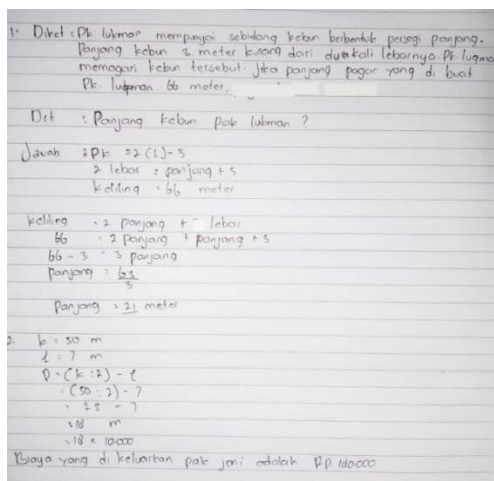 1. Diket : Pk lukman mempunyai sebidang kebun berbentuk persegi panjang.
Panjang kebun 3 meter kurang dari dua kali lebarnya. Pk. luqma
memagari kebun tersebut. Jika panjang pagar yang di buat
Pk. luqman 66 meter.
Dit : Panjang kebun pak lukman ?
Jawab : Pk = 2 (l) - 3
2 lebar = panjang + 3
Keliling = 66 meter
keliling = 2 panjang + lebar
66 = 2 panjang + panjang + 3
66 - 3 = 3 panjang
panjang = 63
3
panjang = 21 meter
2. k = 50 m
l = 7 m
P = (k : 2) - l
= (50 : 2) - 7
= 25 - 7
= 18 m
= 18 x 10.000
Biaya yang di keluarkan pak joni adalah Rp. 180.000